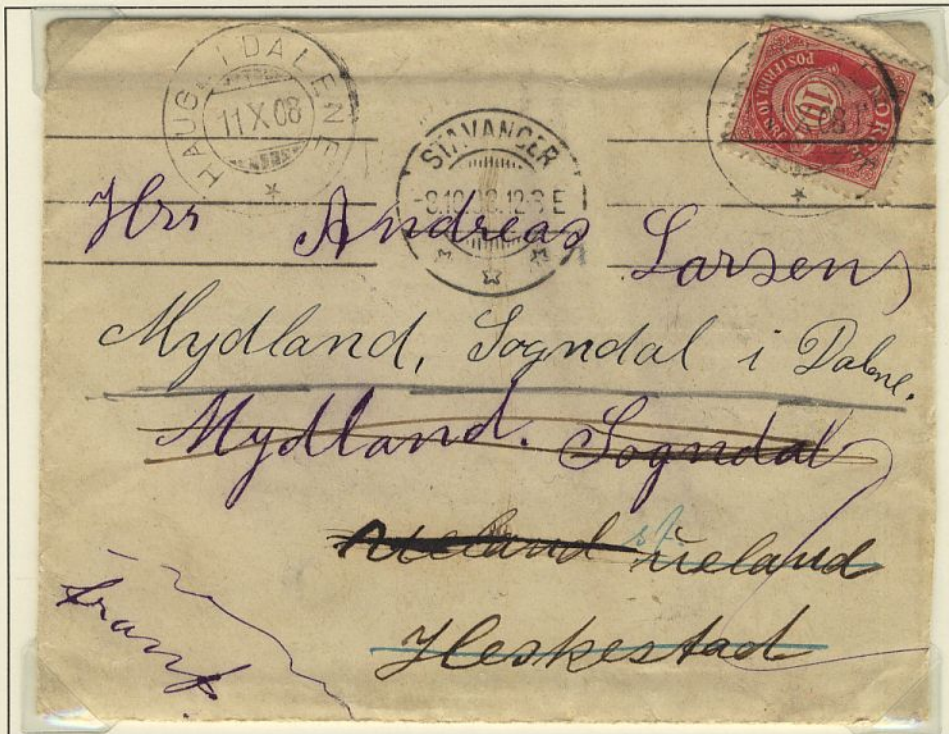 HAUG I DALENE
11 X 08
STAVANGER
-8.10.08.12-3 E
NORGE
POSTFRIM. 10
10
08
Hrr Andreas Larsen
Mydland, Sogndal i Dalene.
Mydland. Sogndal
Ueland st Ueland
Heskestad